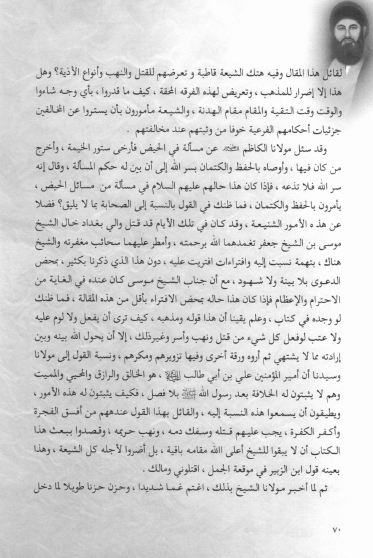 لقائل هذا المقال وفيه هتك الشيعة قاطبة و تعرضهم للقتل والنهب وأنواع الأذية؟ وهل
هذا إلا إضرار للمذهب ، وتعريض لهذه الفرقه المحقة ، كيف ما قدروا ، بأي وجه شاءوا
والوقت وقت التقية والمقام مقام الهدنة ، والشيعة مأمورون بأن يستروا عن المخالفين
جزئيات أحكامهم الفرعية خوفا من وثبتهم عند مخالفتهم .
وقد سئل مولانا الكاظم عن مسألة في الحيض فأرخى ستور الخيمة ، وأخرج
من كان فيها ، وأوصاه بالحفظ والكتمان بسر الله إلى أن بين له حكم المسألة ، وقال إنه
سر الله فلا تذعه ، فإذا كان هذا حالهم عليهم السلام في مسألة من مسائل الحيض ،
يأمرون بالحفظ والكتمان ، فما ظنك في القول بالنسبة إلى الصحابة بما لا يليق؟ فضلا
عن هذه الأمور الشنيعة ، وقد كان في تلك الأيام قد قتل والي بغداد خال الشيخ
موسى بن الشيخ جعفر تغمدهما الله برحمته ، وأمطر عليهما سحائب مغفرته والشيخ
هناك ، بتهمة نسبت إليه وافتراءات افتريت عليه ، دون هذا الذي ذكرنا بكثير ، بمحض
الدعوى بلا بينة ولا شهود ، مع أن جناب الشيخ موسى كان عنده في الغاية من
الاحترام والإعظام فإذا كان هذا حاله بمحض الافتراء بأقل من هذه المقالة ، فما ظنك
لو وجده في كتاب ، وعلم يقينا أن هذا قوله ومذهبه ، كيف ترى أن يفعل ولا لوم عليه
ولا عتب لوفعل كل شيء من قتل ونهب وأسر وغيرذلك ، إلا أن يحول الله بينه وبين
إرادته مما لا يشتهي ثم أروه ورقة أخرى وفيها تزويرهم ومكرهم ، ونسبة القول إلى مولانا
وسيدنا أن أمير المؤمنين علي بن أبي طالب ، هو الخالق والرازق والمحيي والمميت
وهم لا يثبتون له الخلافة بعد رسول الله بلا فصل ، فكيف يثبتون له هذه الأمور ،
ويطيقون أن يسمعوا هذه النسبة إليه ، والقائل بهذا القول عندهم من أفسق الفجرة
وأكفر الكفرة ، يجب عليهم قتله وسفك دمه ، ونهب حريمه ، وقصدوا ببعث هذا
الكتاب أن لا يبقوا للشيخ أعلى الله مقامه باقية ، بل أضروا لأجله كل الشيعة ، وهذا
بعينه قول ابن الزبير في موقعة الجمل ، اقتلوني ومالك .
ثم لما أخبر مولانا الشيخ بذلك ، اغتم غما شديدا ، وحزن حزنا طويلا لما دخل
٧٠